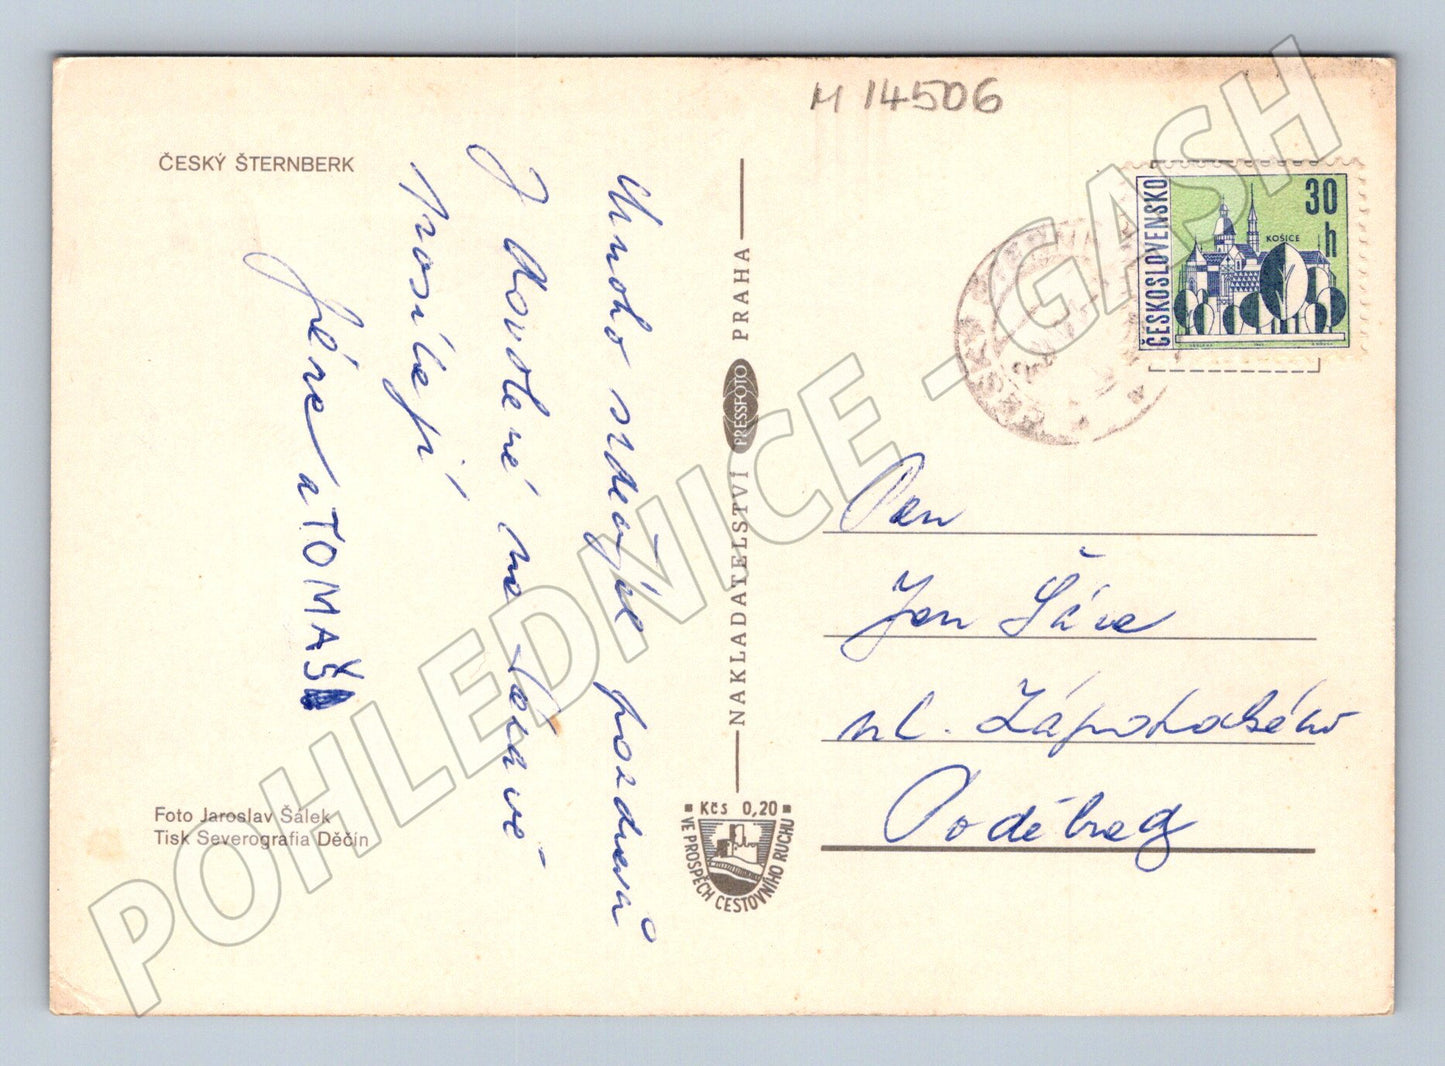 M 14506
ČESKÝ ŠTERNBERK
Mnoho srdečných pozdravů
z dovolené na Sázavě
posílají
a TOMAŠ
Foto Jaroslav Šálek
Tisk Severografia Děčín
NAKLADATELSTVÍ PRESSFOTO PRAHA
Kčs 0,20
VE PROSPĚCH CESTOVNÍHO RUCHU
ČESKOSLOVENSKO
30 h
KOŠICE
ČESKÝ
Pan
Jan Sáva
ul. Zápotockého
Poděbrady
POHLEDNICE - GASH